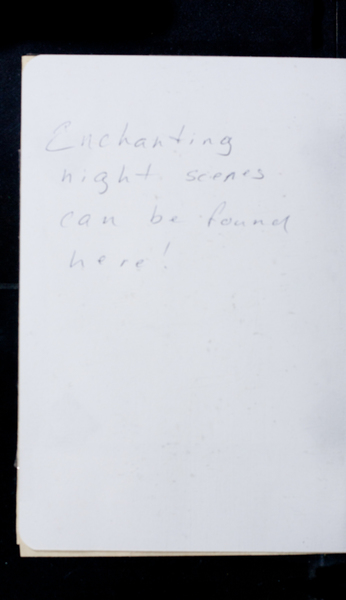 Enchanting
night scenes
can be found
here!